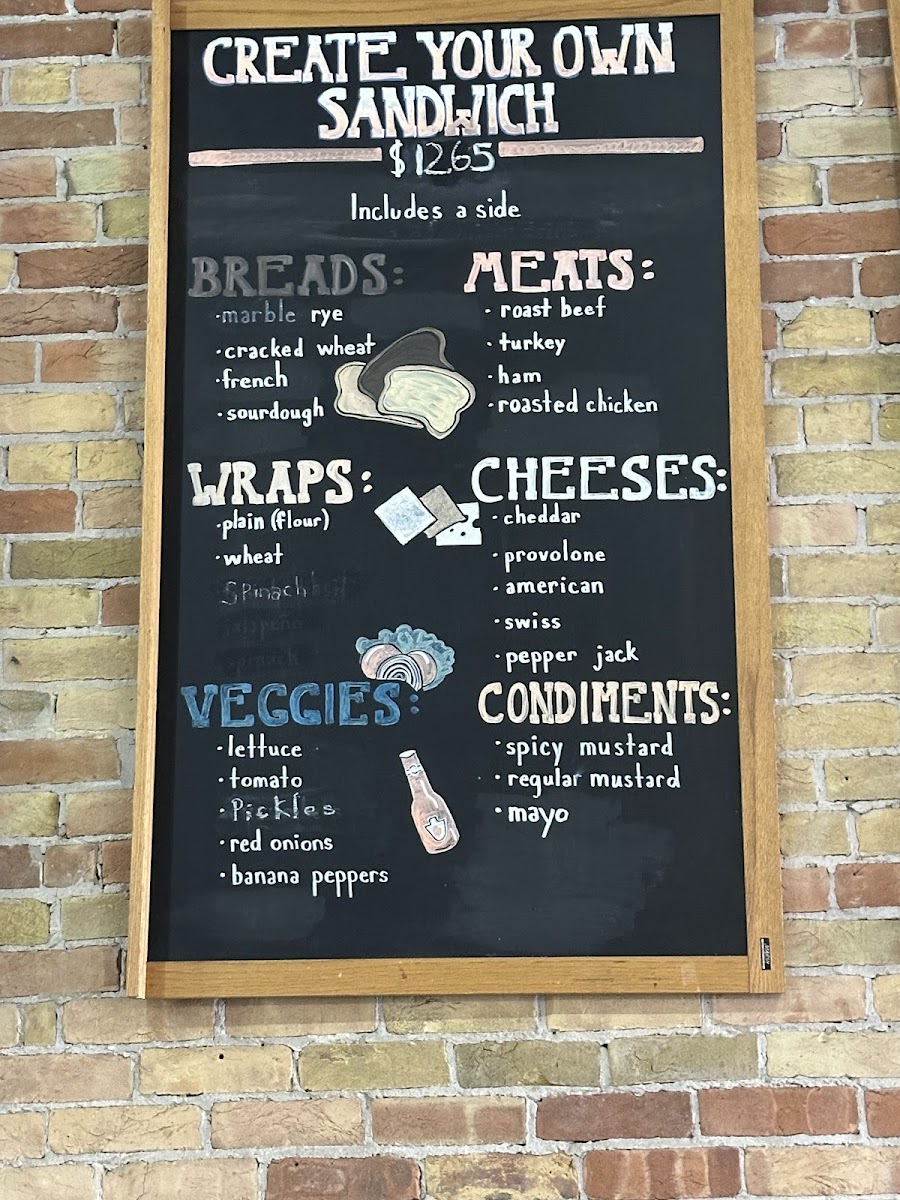 CREATE YOUR OWN
SANDWICH
$1265
Includes a side
BREADS:
·marble rye
·cracked wheat
·french
·sourdough
MEATS:
·roast beef
·turkey
·ham
·roasted chicken
WRAPS:
·plain (flour)
·wheat
Spinach
jalapeño
CHEESES:
·cheddar
·provolone
·american
·swiss
·pepper jack
VEGGIES:
·lettuce
·tomato
·Pickles
·red onions
·banana peppers
CONDIMENTS:
·spicy mustard
·regular mustard
·mayo